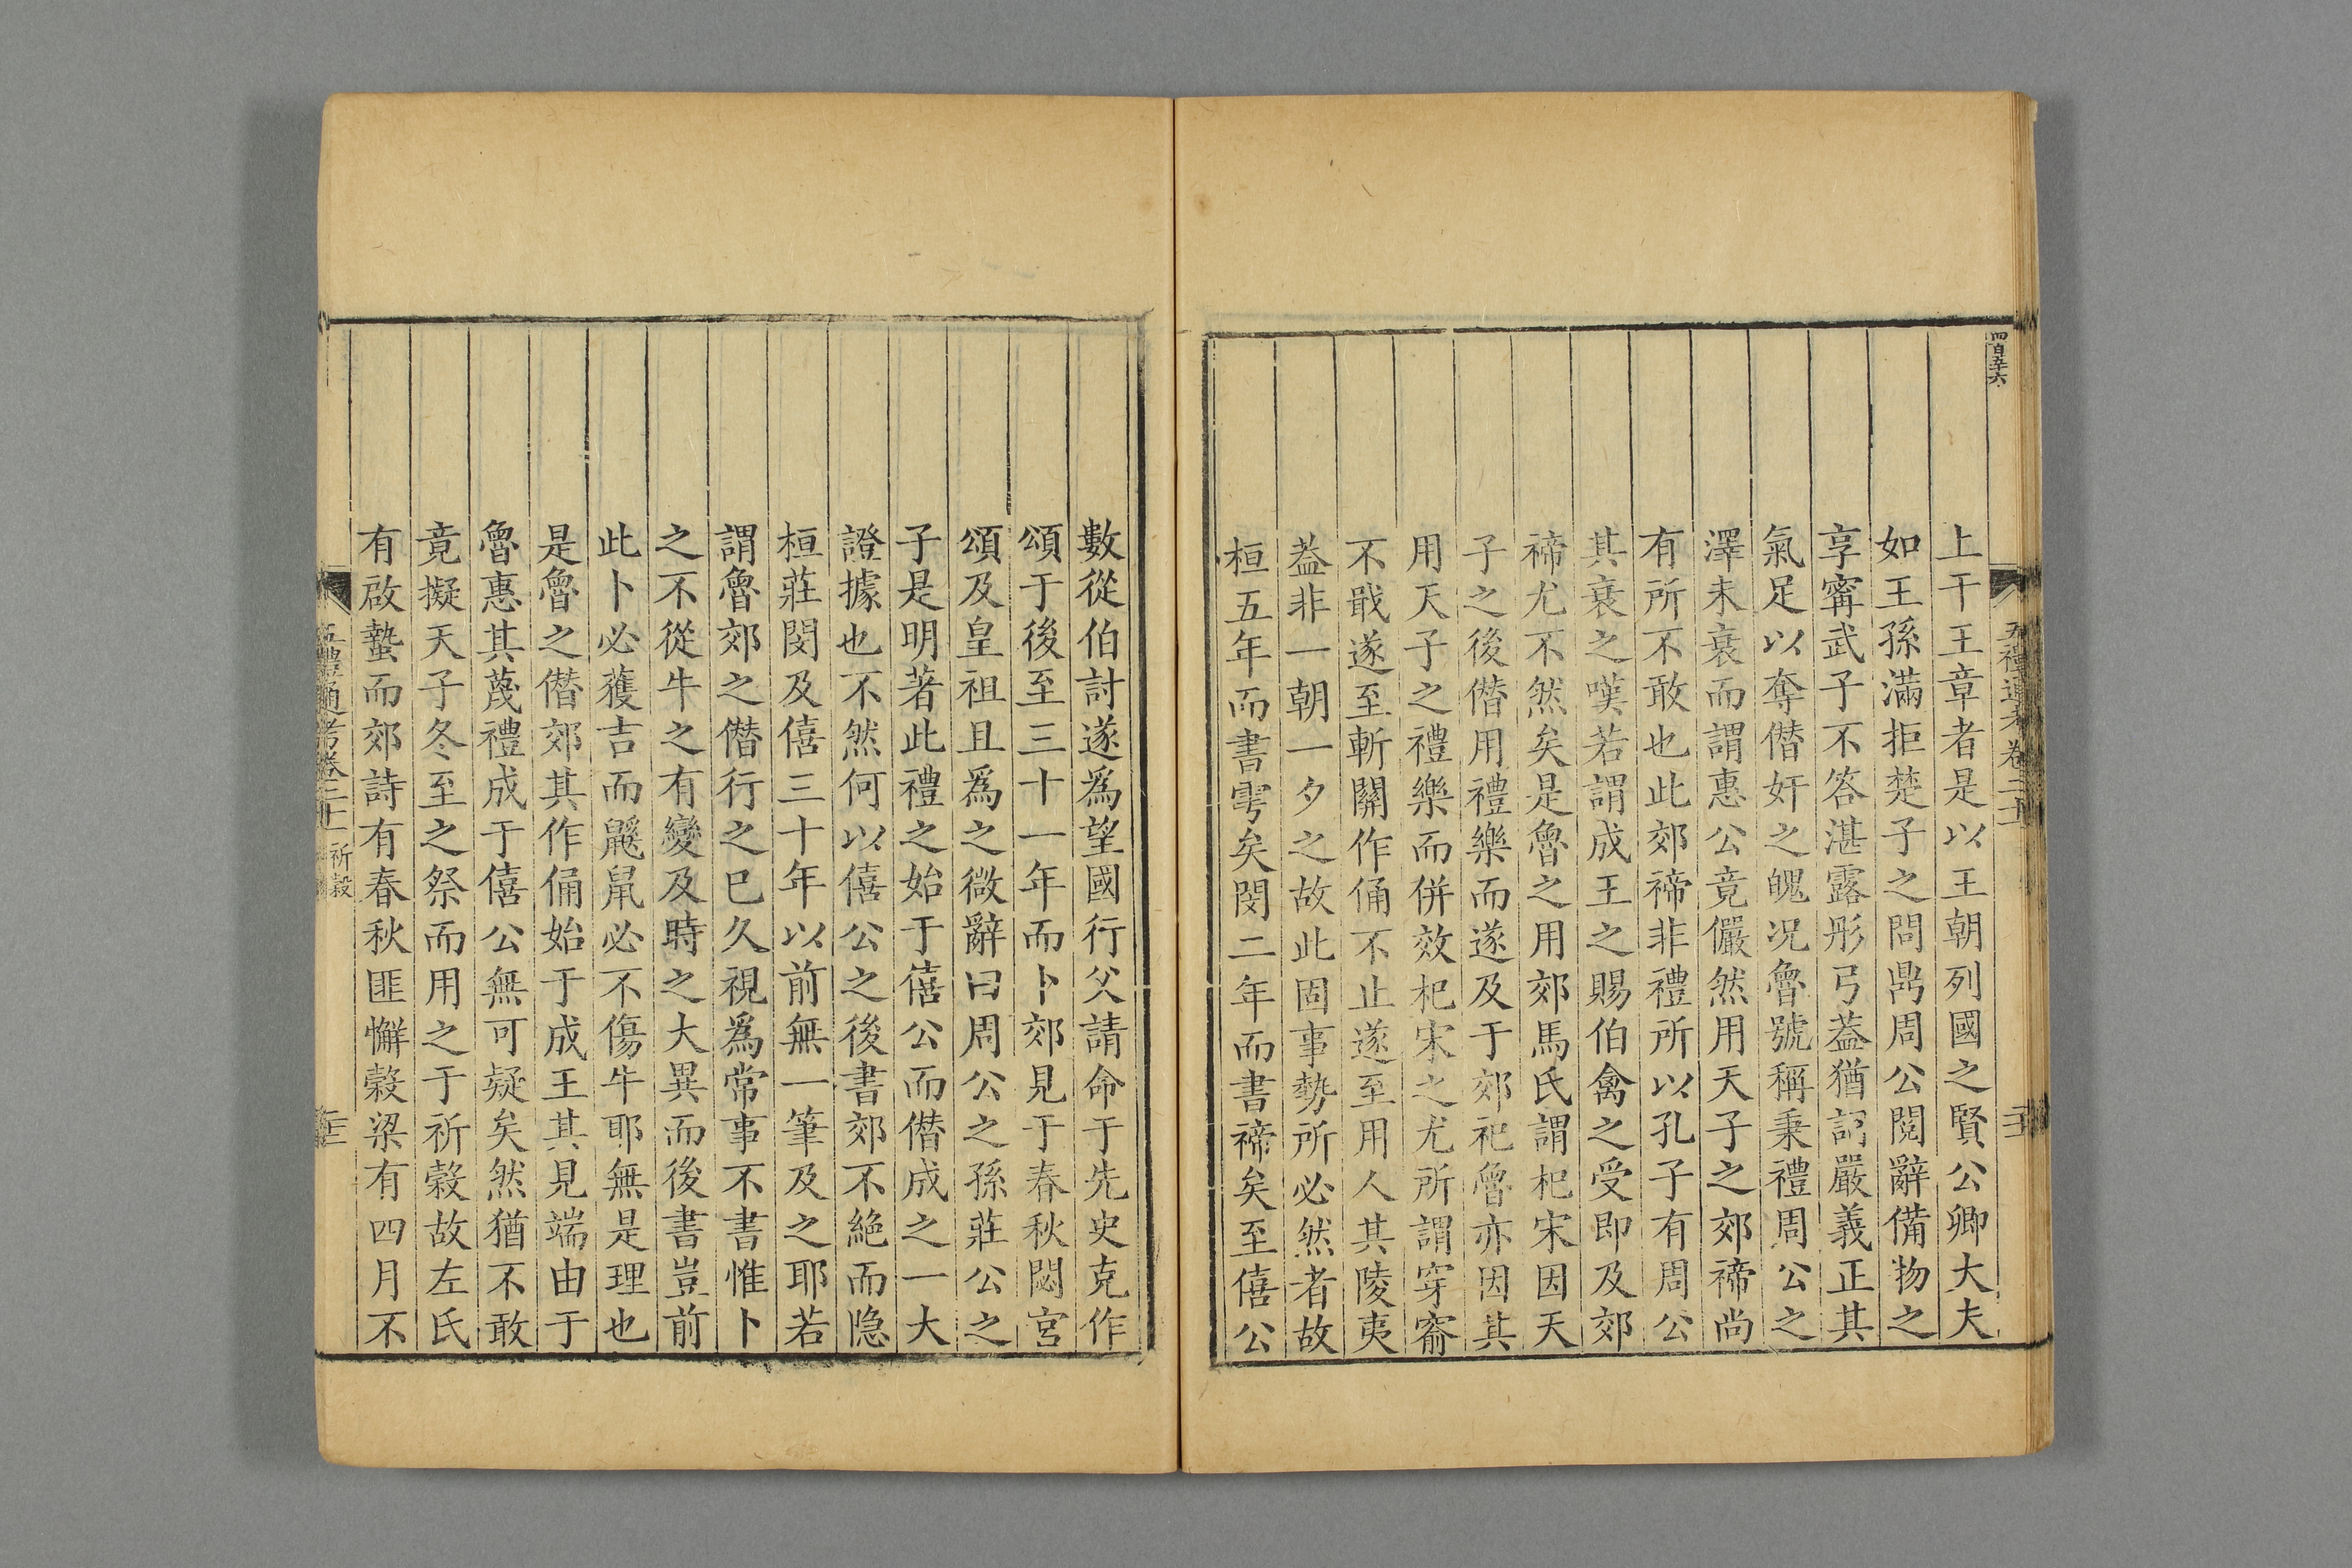 四百五十六
五禮通考卷二十一
上干王章者是以王朝列國之賢公卿大夫
如王孫滿拒楚子之問鼎周公閱辭備物之
享甯武子不答湛露彤弓葢猶詞嚴義正其
氣足以奪僭奸之魄况魯號稱秉禮周公之
澤未衰而謂惠公竟儼然用天子之郊禘尚
有所不敢也此郊禘非禮所以孔子有周公
其衰之嘆若謂成王之賜伯禽之受即及郊
禘尤不然矣是魯之用郊馬氏謂杞宋因天
子之後僭用禮樂而遂及于郊祀魯亦因其
用天子之禮樂而併效杞宋之尤所謂穿窬
不戢遂至斬關作俑不止遂至用人其陵夷
葢非一朝一夕之故此固事勢所必然者故
桓五年而書雩矣閔二年而書禘矣至僖公
數從伯討遂爲望國行父請命于先史克作
頌于後至三十一年而卜郊見于春秋閟宮
頌及皇祖且爲之微辭曰周公之孫莊公之
子是明著此禮之始于僖公而僭成之一大
證據也不然何以僖公之後書郊不絶而隐
桓莊閔及僖三十年以前無一筆及之耶若
謂魯郊之僭行之巳久視爲常事不書惟卜
之不從牛之有變及時之大異而後書豈前
此卜必獲吉而鼷鼠必不傷牛耶無是理也
是魯之僭郊其作俑始于成王其見端由于
魯惠其蔑禮成于僖公無可疑矣然猶不敢
竟擬天子冬至之祭而用之于祈穀故左氏
有啟蟄而郊詩有春秋匪懈穀梁有四月不
五禮通考卷二十一 祈穀